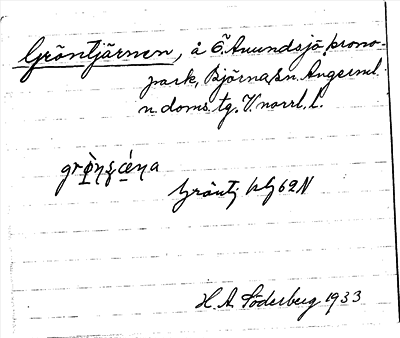 Gröntjärnen, å Ö. Anundsjö krono-
park, Björna sn. Ångerml.
n. doms. tg. V. norrl. l.
Gröntj kg 62 N
H. A. Söderberg 1933